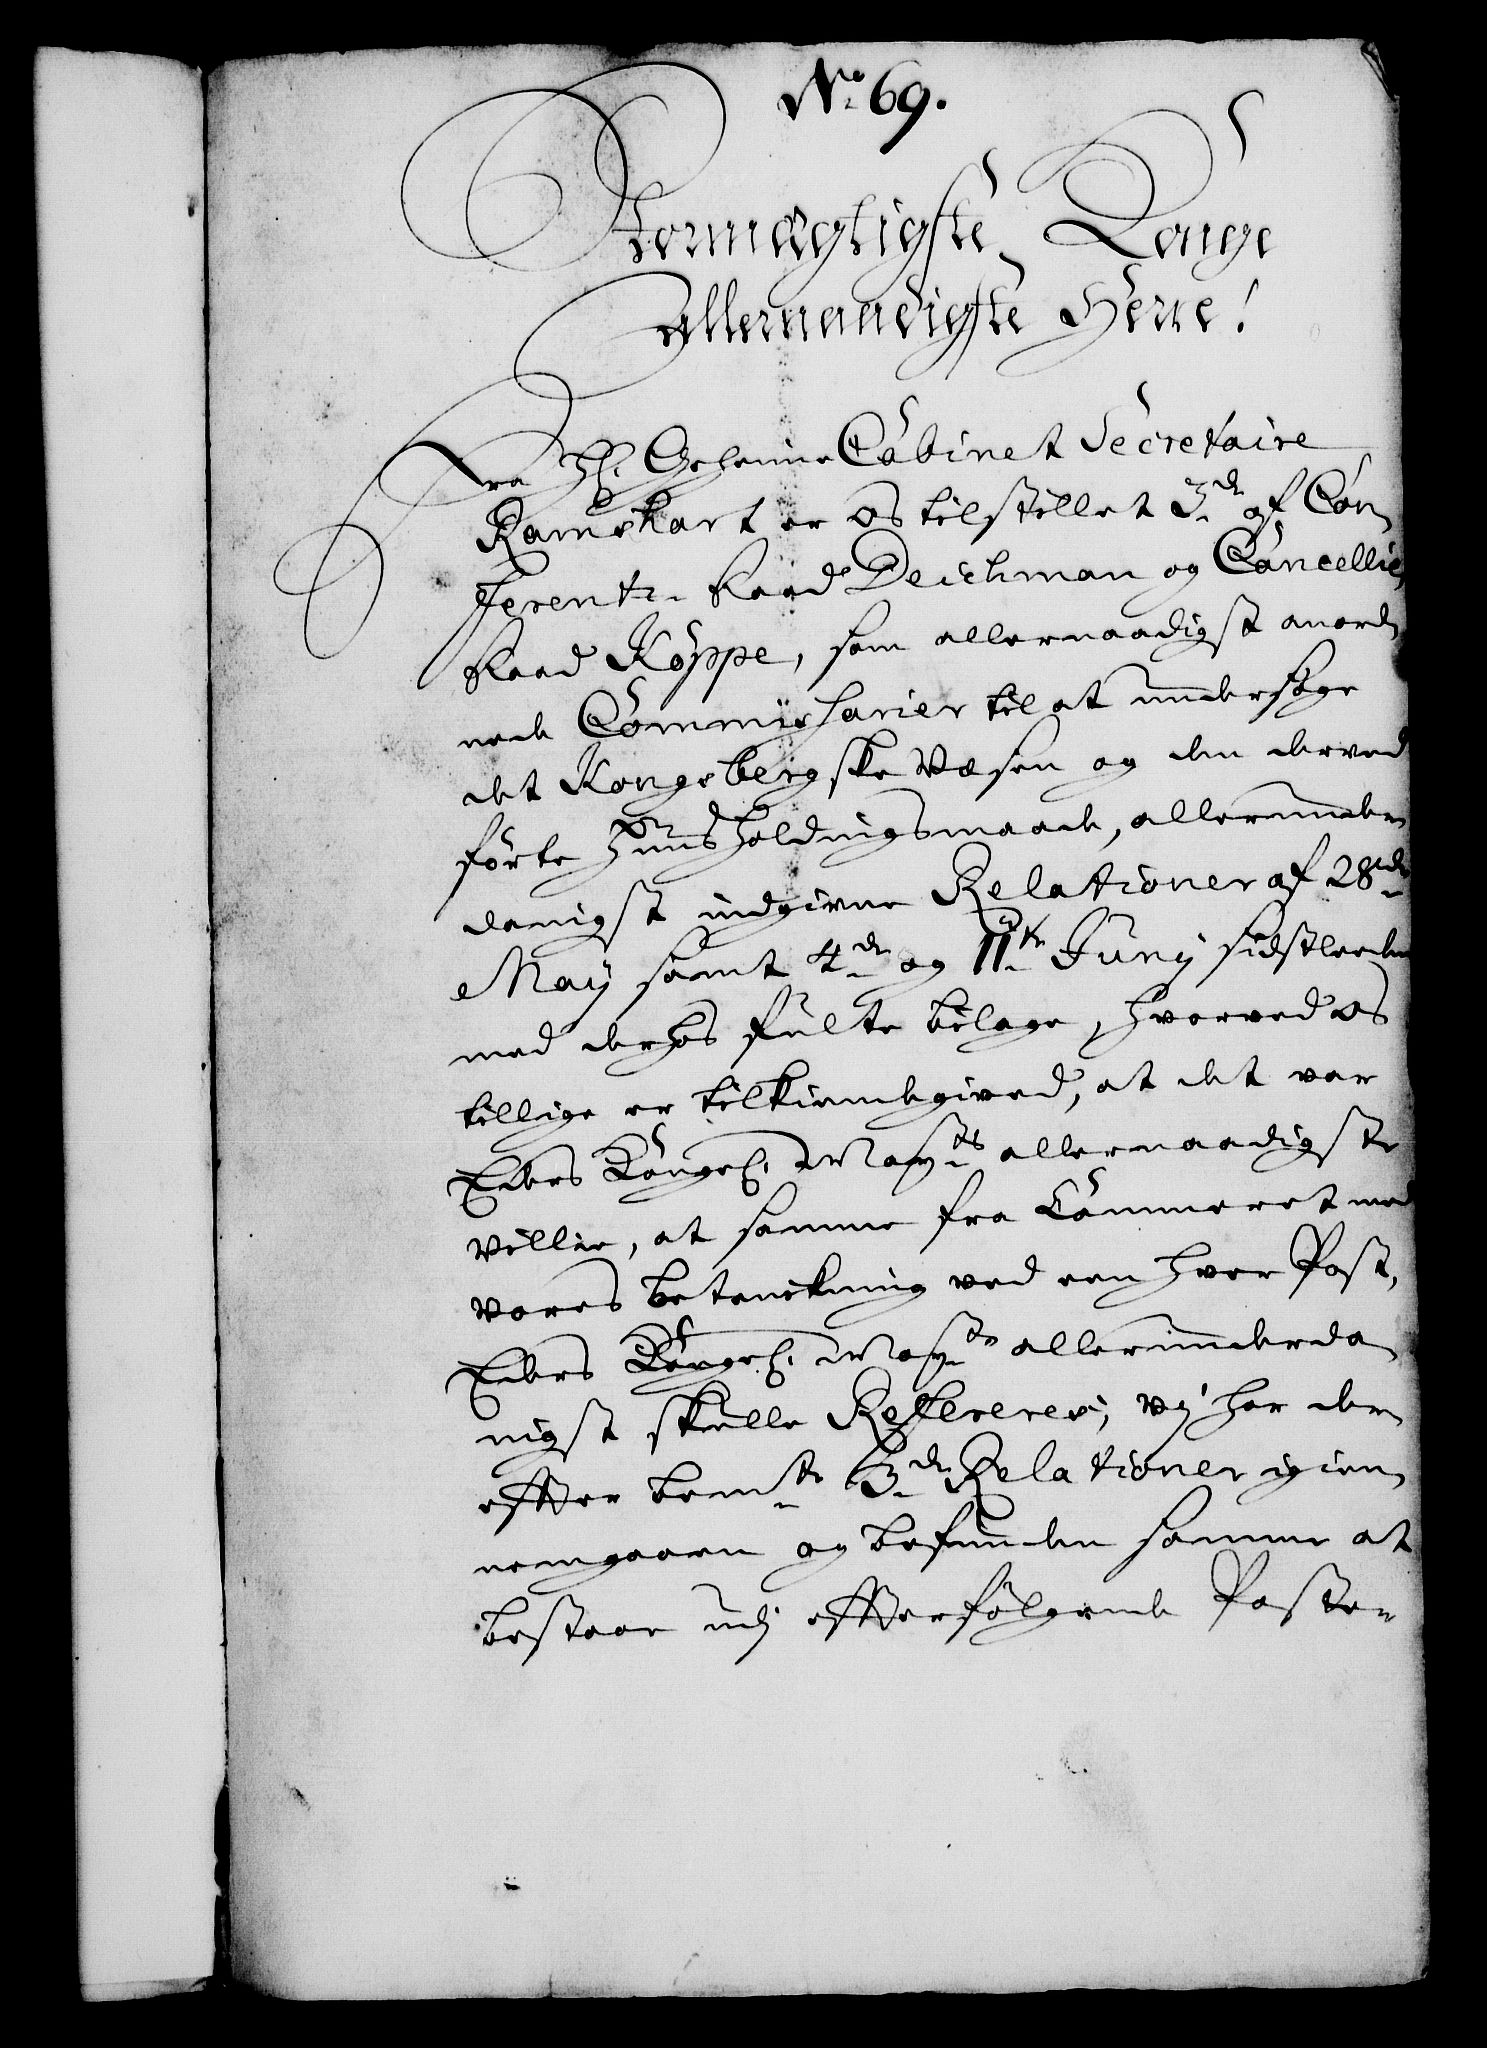 No. 69.
Stormægtigste Konge
Allernaadigste Herre!
Fra Hr. Geheime Cabinet Secretaire
Ramshart er os tilstillet 3de af Con¬
ferentz Raad Deichman og Cancellie
Raad Köppe, som allernaadigst anord¬
nede Commissarier til at undersøge
det Kongsbergske Væsen og den derved
förte Huusholdningsmaade, allerunder¬
danigst indgivne Relationer af 28de
May samt 4de og 11te Juny sidstleeden
med derhos fulte bilage, hvorved os
tillige er tilkiendegived, at det var
Eders Kongel. Mayts allernaadigste
Villie, at samme fra Cammeret med
vores betenckning ved een hver Post,
Eders Kongel. Mayts allerunderda¬
nigst skulle Refereres; Vj har der¬
effter bemte 3de Relationer igien¬
nemgaaen og befunden samme at
bestaae udj effterfölgende Poster